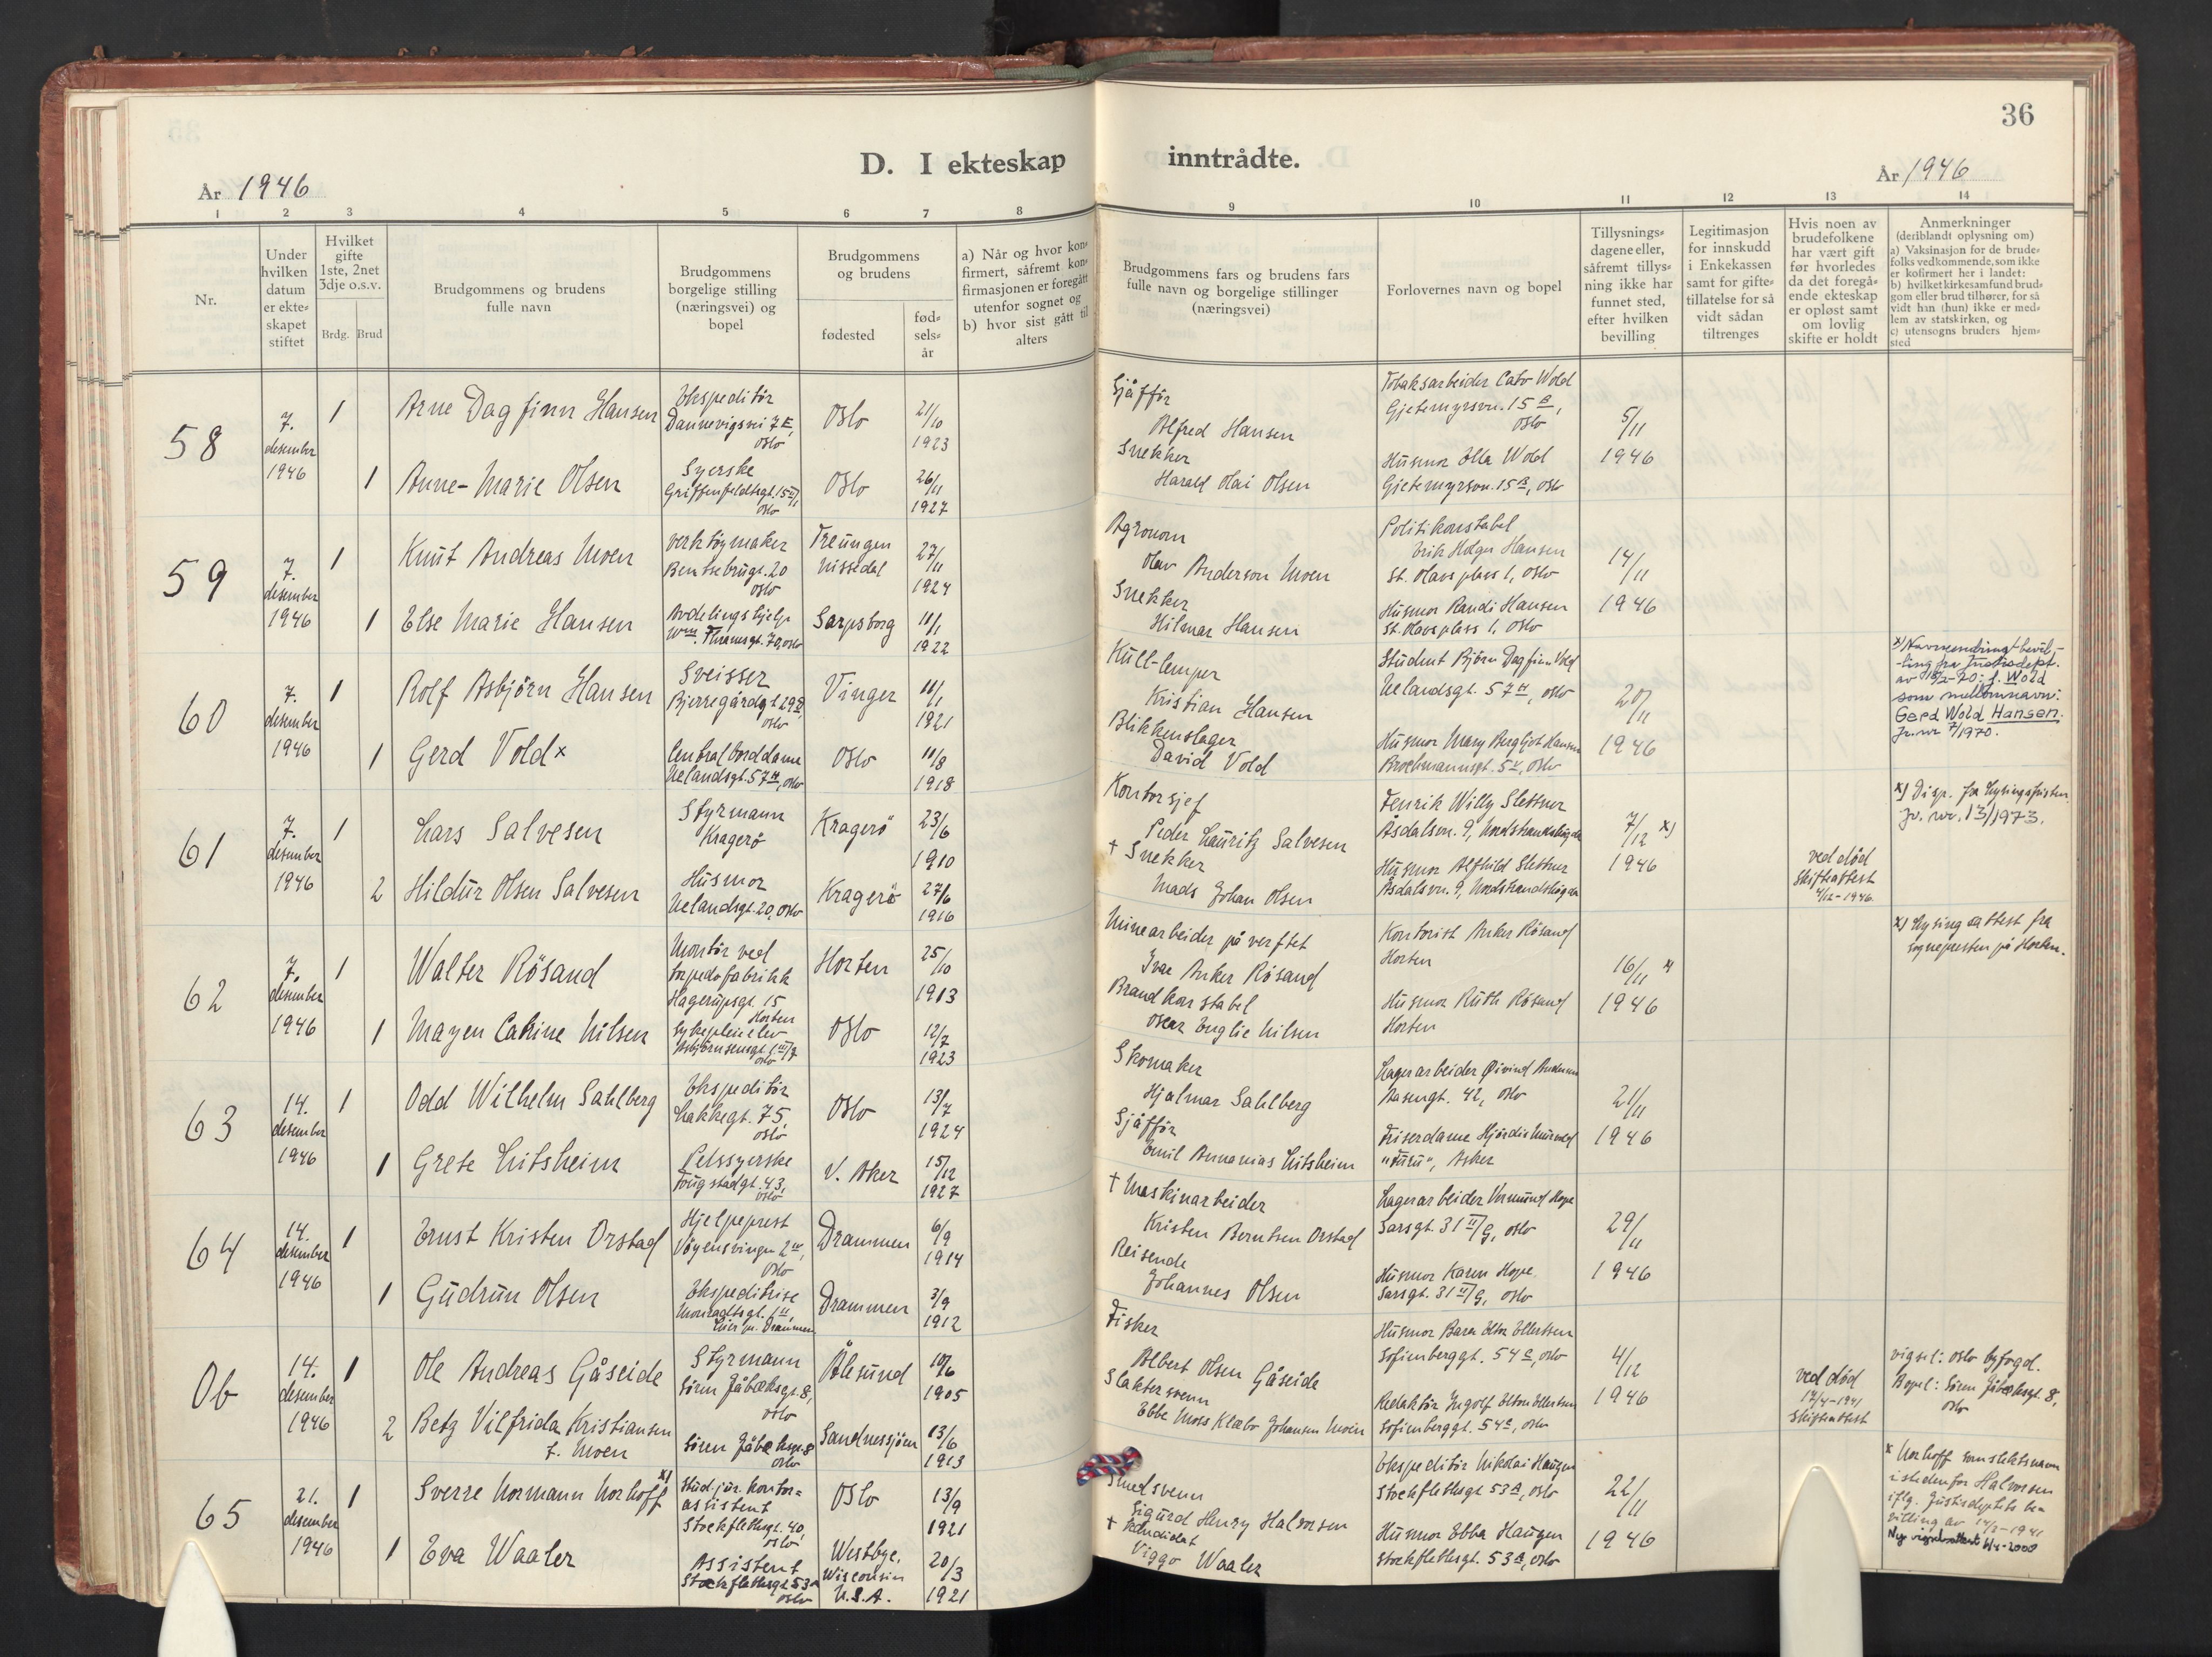 36
D. I ekteskap inntrådte.
År 1946
År 1946
1 2 3 4 5 6 7 8 9 10 11 12 13 14
Nr.
Under
hvilken
datum
er ekte-
skapet
stiftet
Hvilket
gifte
1ste, 2net
3dje o.s.v.
Brdg. Brud
Brudgommens og brudens
fulle navn
Brudgommens
borgelige stilling
(næringsvei) og
bopel
Brudgommens
og brudens
fødested
fød-
sels-
år
a) Når og hvor kon-
firmert, såfremt kon-
firmasjonen er foregått
utenfor sognet og
b) hvor sist gått til
alters
Brudgommens fars og brudens fars
fulle navn og borgelige stillinger
(næringsvei)
Forlovernes navn og bopel
Tillysnings-
dagene eller,
såfremt tillys-
ning ikke har
funnet sted,
efter hvilken
bevilling
Legitimasjon
for innskudd
i Enkekassen
samt for gifte-
tillatelse for så
vidt sådan
tiltrenges
Hvis noen av
brudefolkene
har vært gift
før hvorledes
da det foregå-
ende ekteskap
er opløst samt
om lovlig
skifte er holdt
Anmerkninger
(deriblandt oplysning om)
a) Vaksinasjon for de brude-
folks vedkommende, som ikke
er kofirmert her i landet:
b) hvilket kirkesamfund brud-
gom eller brud tilhører, for så
vidt han (hun) ikke er med-
lem av statskirken, og
c) utensogns bruders hjem-
sted
58
7.
desember
1946
1
Arne Dagfinn Hansen
Ekspeditør
Dannevigsvei 7 E,
Oslo
Oslo
21/10
1923
Sjåffør
Alfred Hansen
Tobaksarbeider Cato Wold
Gjetemyrsvn. 15 B,
Oslo
5/11
1946
1
Anne-Marie Olsen
Syerske
Griffenfeldtsgt. 15 II/
Oslo
Oslo
26/11
1927
Snekker
Harald Olai Olsen
Husmor Ella Wold
Gjetemyrsvn. 15 B, Oslo
59
7.
desember
1946
1
Knut Andreas Moen
Verktøymaker
Bentsebrugt. 20
Oslo
Treungen
Nissedal
27/11
1924
Agronom
Olav Anderson Moen
Politikonstabel
Erik Holger Hansen
St. Olavs plass 1, Oslo
14/11
1946
1
Else Marie Hansen
Avdelingshjelp
Wm. Thranesgt. 70, Oslo
Sarpsborg
11/1
1922
Snekker
Hilmar Hansen
Husmor Randi Hansen
St. Olavs plass 1, Oslo
60
7.
desember
1946
1
Rolf Asbjörn Hansen
Sveisser
Bjerregårdsgt 29 B,
Oslo
Vinger
11/1
1921
Kull-lemper
Kristian Hansen
Student Björn Dagfinn Vold
Uelandsgt. 57 H, Oslo
20/11
1946
x) Navneendringsbevil-
-ling fra Justisdept.
av 18/2-70: f. Wold
som mellomnavn:
Gerd Wold Hansen.
Jr.nr 7/1970.
1
Gerd Vold x
Centralborddame
Uelandsgt. 57 H, Oslo
Oslo
11/8
1918
Blikkenslager
David Vold
Husmor Mary Bergljot Hansen
Brochmannsgt. 5 V, Oslo
61
7.
desember
1946
1
Lars Salvesen
Styrmann
Kragerø
Kragerö
23/6
1910
Kontorsjef
Peder Lauritz Salvesen
Fenrik Willy Slettner
Åsdalsvn. 9, Nordstrandshøgda
7/12 x)
1946
x) Disp. fra lysingsfristen.
Jr. nr. 13/1973.
2
Hildur Olsen Salvesen
Husmor
Uelandsgt. 20, Oslo
Kragerö
27/6
1916
† Snekker
Mads Johan Olsen
Husmor Alfhild Slettner
Åsdalsvn. 9, Nordstrandshøgda
ved död
Skifteattest
4/12-1946
62
7.
desember
1946
1
Walter Rösand
Montör ved
torpedofabrikk
Hagerupsgt. 15
Horten
Horten
25/10
1913
Minearbeider på verftet
Ivar Anker Rösand
Kontorist Anker Rösand
Horten
16/11 x)
1946
x) Lysingsattest fra
sognepresten på Horten.
1
Mayen Cahine Nilsen
Sykepleieelev
Asbjörnsensgt. 1 III/7
Oslo
Oslo
12/7
1923
Brandkonstabel
Oscar Englie Nilsen
Husmor Ruth Rösand
Horten
63
14.
desember
1946
1
Odd Wilhelm Sahlberg
Ekspeditör
Lakkegt. 75,
Oslo
Oslo
13/7
1924
Skomaker
Hjalmar Sahlberg
Lagerarbeider Øivind Andersen
Aasengt. 42, Oslo
21/11
1946
1
Grete Litsheim
Pelssyerske
Fougstadgt. 43,
Oslo
V. Aker
15/12
1927
Sjåffør
Emil Annanias Litsheim
Friserdame Hjördis Murvold
"Furu", Asker
64
14.
desember
1946
1
Ernst Kristen Orstad
Hjelpeprest
Vöyensvingen 2 IV,
Oslo
Drammen
6/9
1914
† Maskinarbeider
Kristen Berntsen Orstad
Lagerarbeider Vermund Hope
Sarsgt. 31 II/G, Oslo
29/11
1946
1
Gudrun Olsen
Ekspeditrise
Lier pr. Drammen
Drammen
3/9
1912
Reisende
Johannes Olsen
Husmor Karen Hope
Sarsgt. 31 II/G, Oslo
Ob
14.
desember
1946
1
Ole Andreas Gåseide
Styrmann
Sören Jåbæksgt. 8,
Oslo
Ålesund
10/6
1905
Fisker
Albert Olsen Gåseide
Husmor Bara Elton Ellertsen
Sofienberggt. 54 C, Oslo
4/12
1946
ved död
14/4-1941
Skifteattest
vigsel: Oslo byfogd.
Bopel: Sören Jåbæksgt. 8,
Oslo
2
Betzy Vilfrida Kristiansen
f. Moen
Sören Jåbæksgt. 8
Oslo
Sandnessjöen
13/6
1913
Slaktersvenn
Ebbe Moss Klæbo Johansen Moen
Redaktör Ingolf Elton Ellertsen
Sofienberggt. 54 C, Oslo
65
21.
desember
1946
1
Sverre Normann Norhoff x)
Stud. jur. kontor-
assistent
Stockflethsgt. 40,
Oslo
Oslo
13/9
1921
Smedsvenn
Sigurd Henry Halvorsen
Ekspeditör Nikolai Haugen
Stockflethsgt 53 A, Oslo
22/11
1946
x Norhoff som slektsnavn
istedenfor Halvorsen
iflg. Justisdeptets be-
villing av 14/2-1941
Ny vigselsattest 11/4-2000
1
Eva Waaler
Assistent
Stockflethsgt 53 A
Oslo
Westbye,
Wisconsin
U.S.A.
20/3
1921
† Kandidat
Viggo Waaler
Husmor Ebba Haugen
Stockflethsgt. 53 A, Oslo